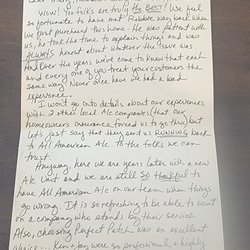 Wow!! You folks are truly the BEST! We feel
so fortunate to have met Robbie way back when
we first purchased this home. He was patient with
us, he took the time to explain things and was
ALWAYS honest about whatever the issue was.
And over the years we've come to know that each
and every one of you treat your customers the
same way. Never once have we had a bad
experience.
I won't go into details about our experiences
with 2 other local A/c companies (that our
homeowners insurance forced us to go thru) but
let's just say that they sent us RUNNING back
to All American A/c. To the folks we can
trust.
Anyway, here we are years later with a new
A/c Unit and we are still SO thankful to
have All American A/c on our team when things
go wrong. It is so refreshing to be able to count
on a company who stands by their service.
Also, choosing Perfect Patch was an excellent
choice... Ken &amp; Jay were so professional &amp; highly